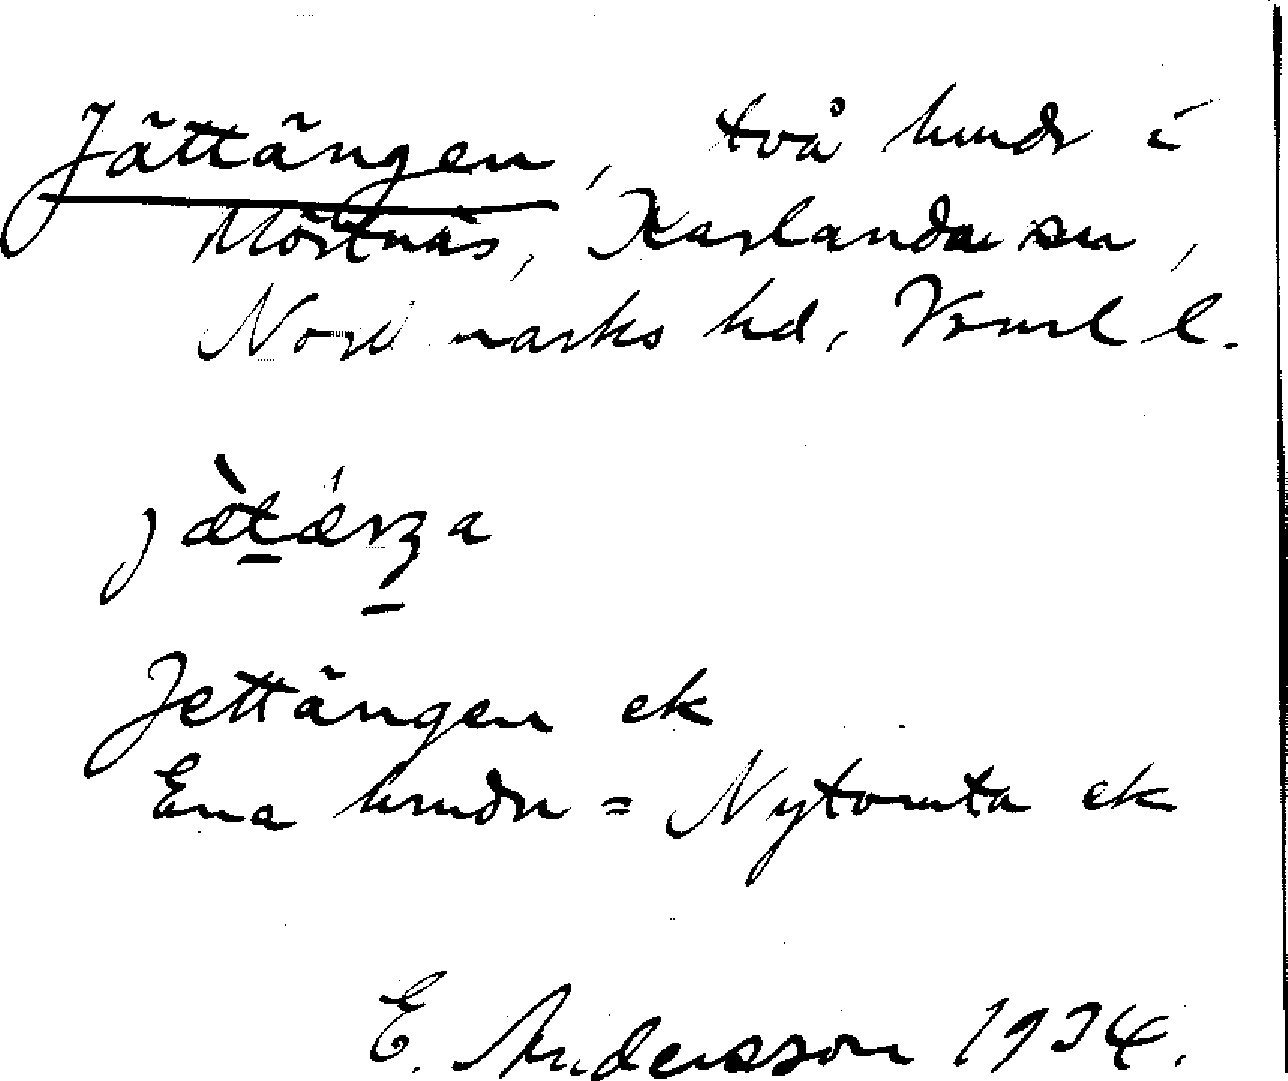 Jättängen, två hmdr i
Mörtnäs, Karlanda sn,
Nordmarks hd, Vrml l.
Jettängen ek
Ena hmdn = Nytomta ek
E. Andersson 1934.